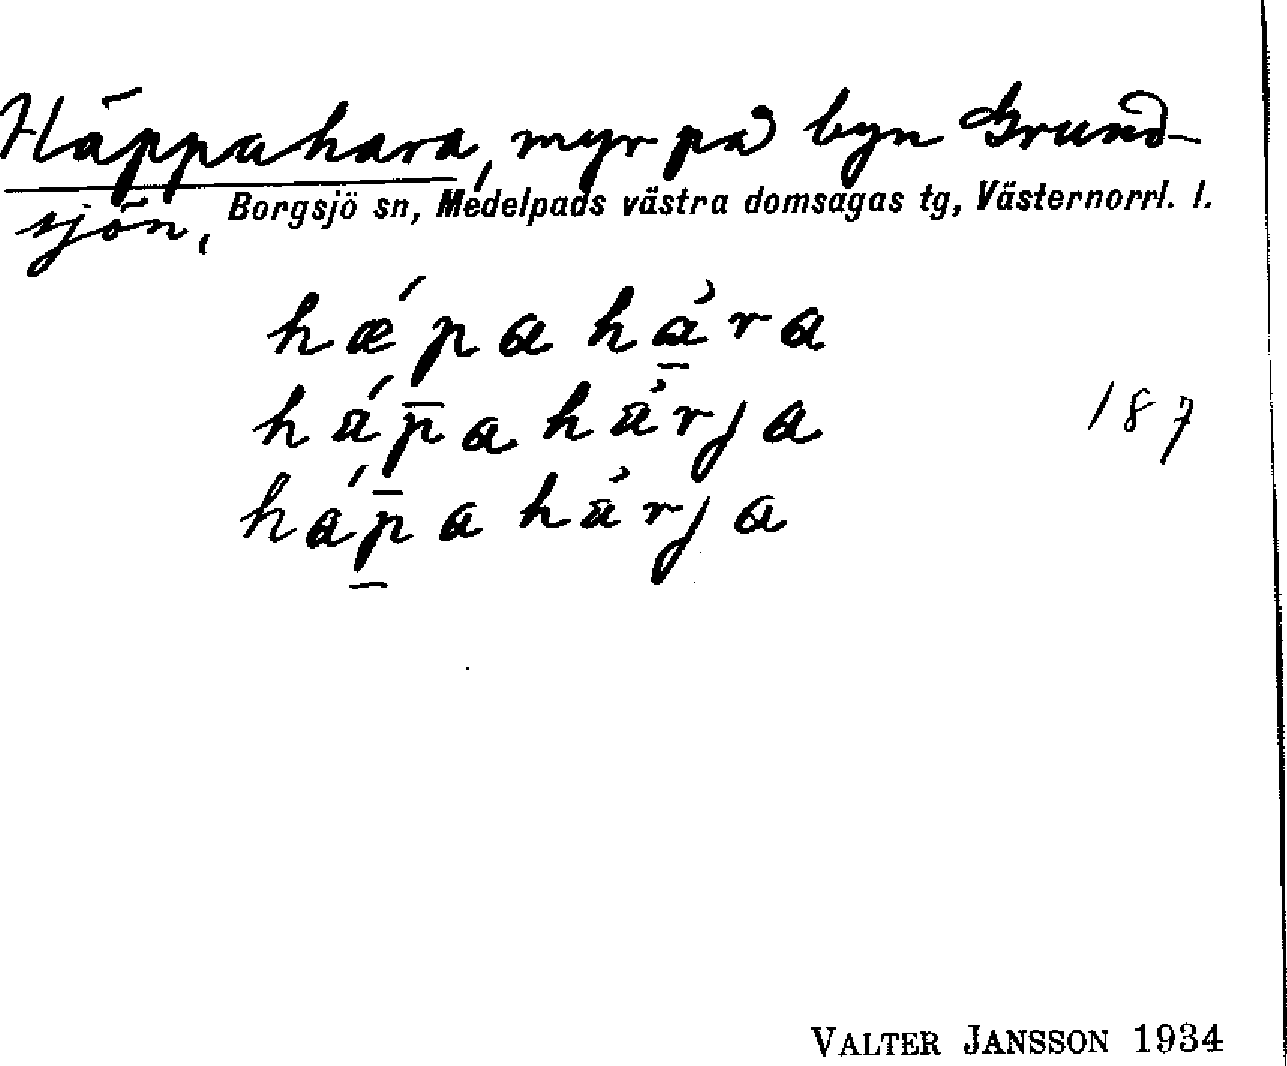 Häppahara, myr på byn Grund-
sjön, Borgsjö sn, Medelpads västra domsagas tg, Västernorrl. l.
hǽpaha̱ra
háp̄ahàrja
187
háp̱̄ahàrja
VALTER JANSSON 1934